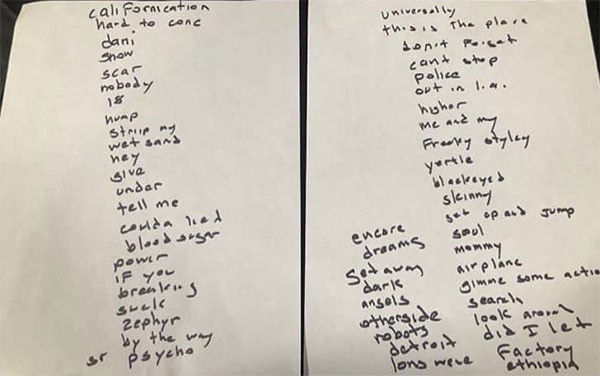 californication
hard to conc
dani
snow
scar
nobody
18
hump
strip my
wet sand
hey
give
under
tell me
coulda lied
blood sugar
power
if you
breaking
suck
zephyr
by the way
sr psycho
universally
this is the place
don't forget
cant stop
police
out in l.a.
higher
me and my
Freaky styley
yertle
blackeyed
skinny
get up and jump
soul
mommy
airplane
gimme some actio
search
look around
did I let
Factory
ethiopia
encore
dreams
get away
dark
angels
otherside
robots
detroit
long wave